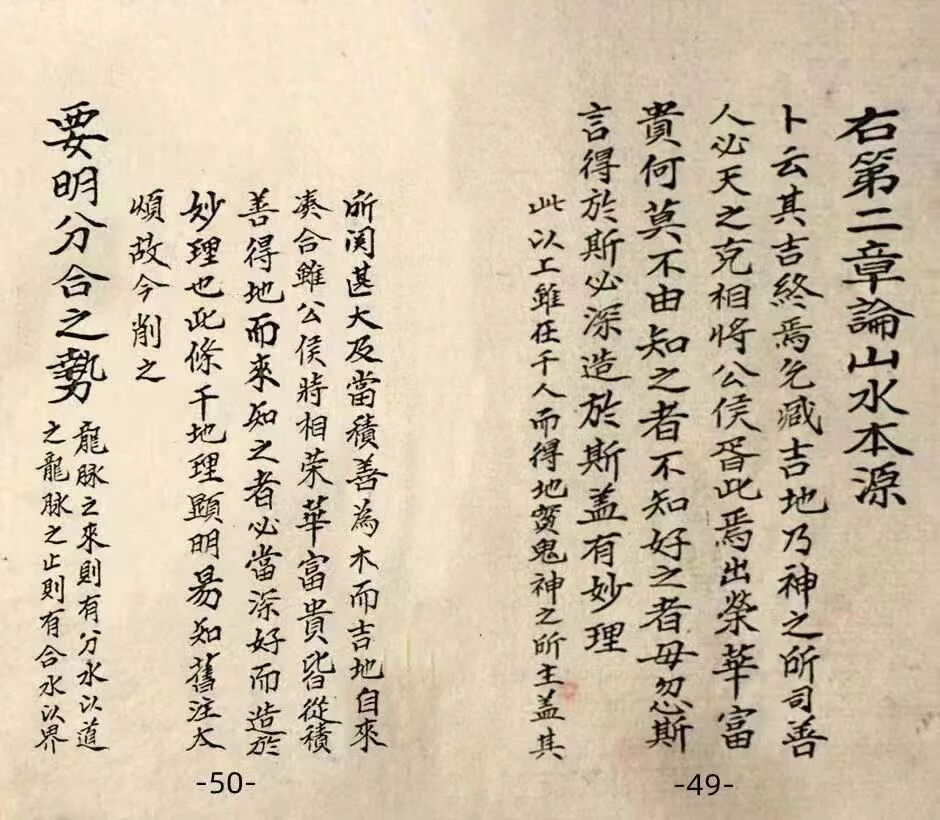 右第二章論山水本源
卜云其吉終焉允臧吉地乃神之所司善
人必天之克相將公侯胥此焉出榮華富
貴何莫不由知之者不知好之者毋忽斯
言得於斯必深造於斯盖有妙理
此以工雖在千人而得地實鬼神之所主盖其
-49-
所関甚大及當積善為木而吉地自來
凑合雖公侯將相荣華富貴皆從積
善得地而來知之者必當深好而造於
妙理也此條千地理顯明易知舊注太
煩故今削之
要明分合之勢
龍脉之來則有分水以道
之龍脉之止則有合水以界
-50-